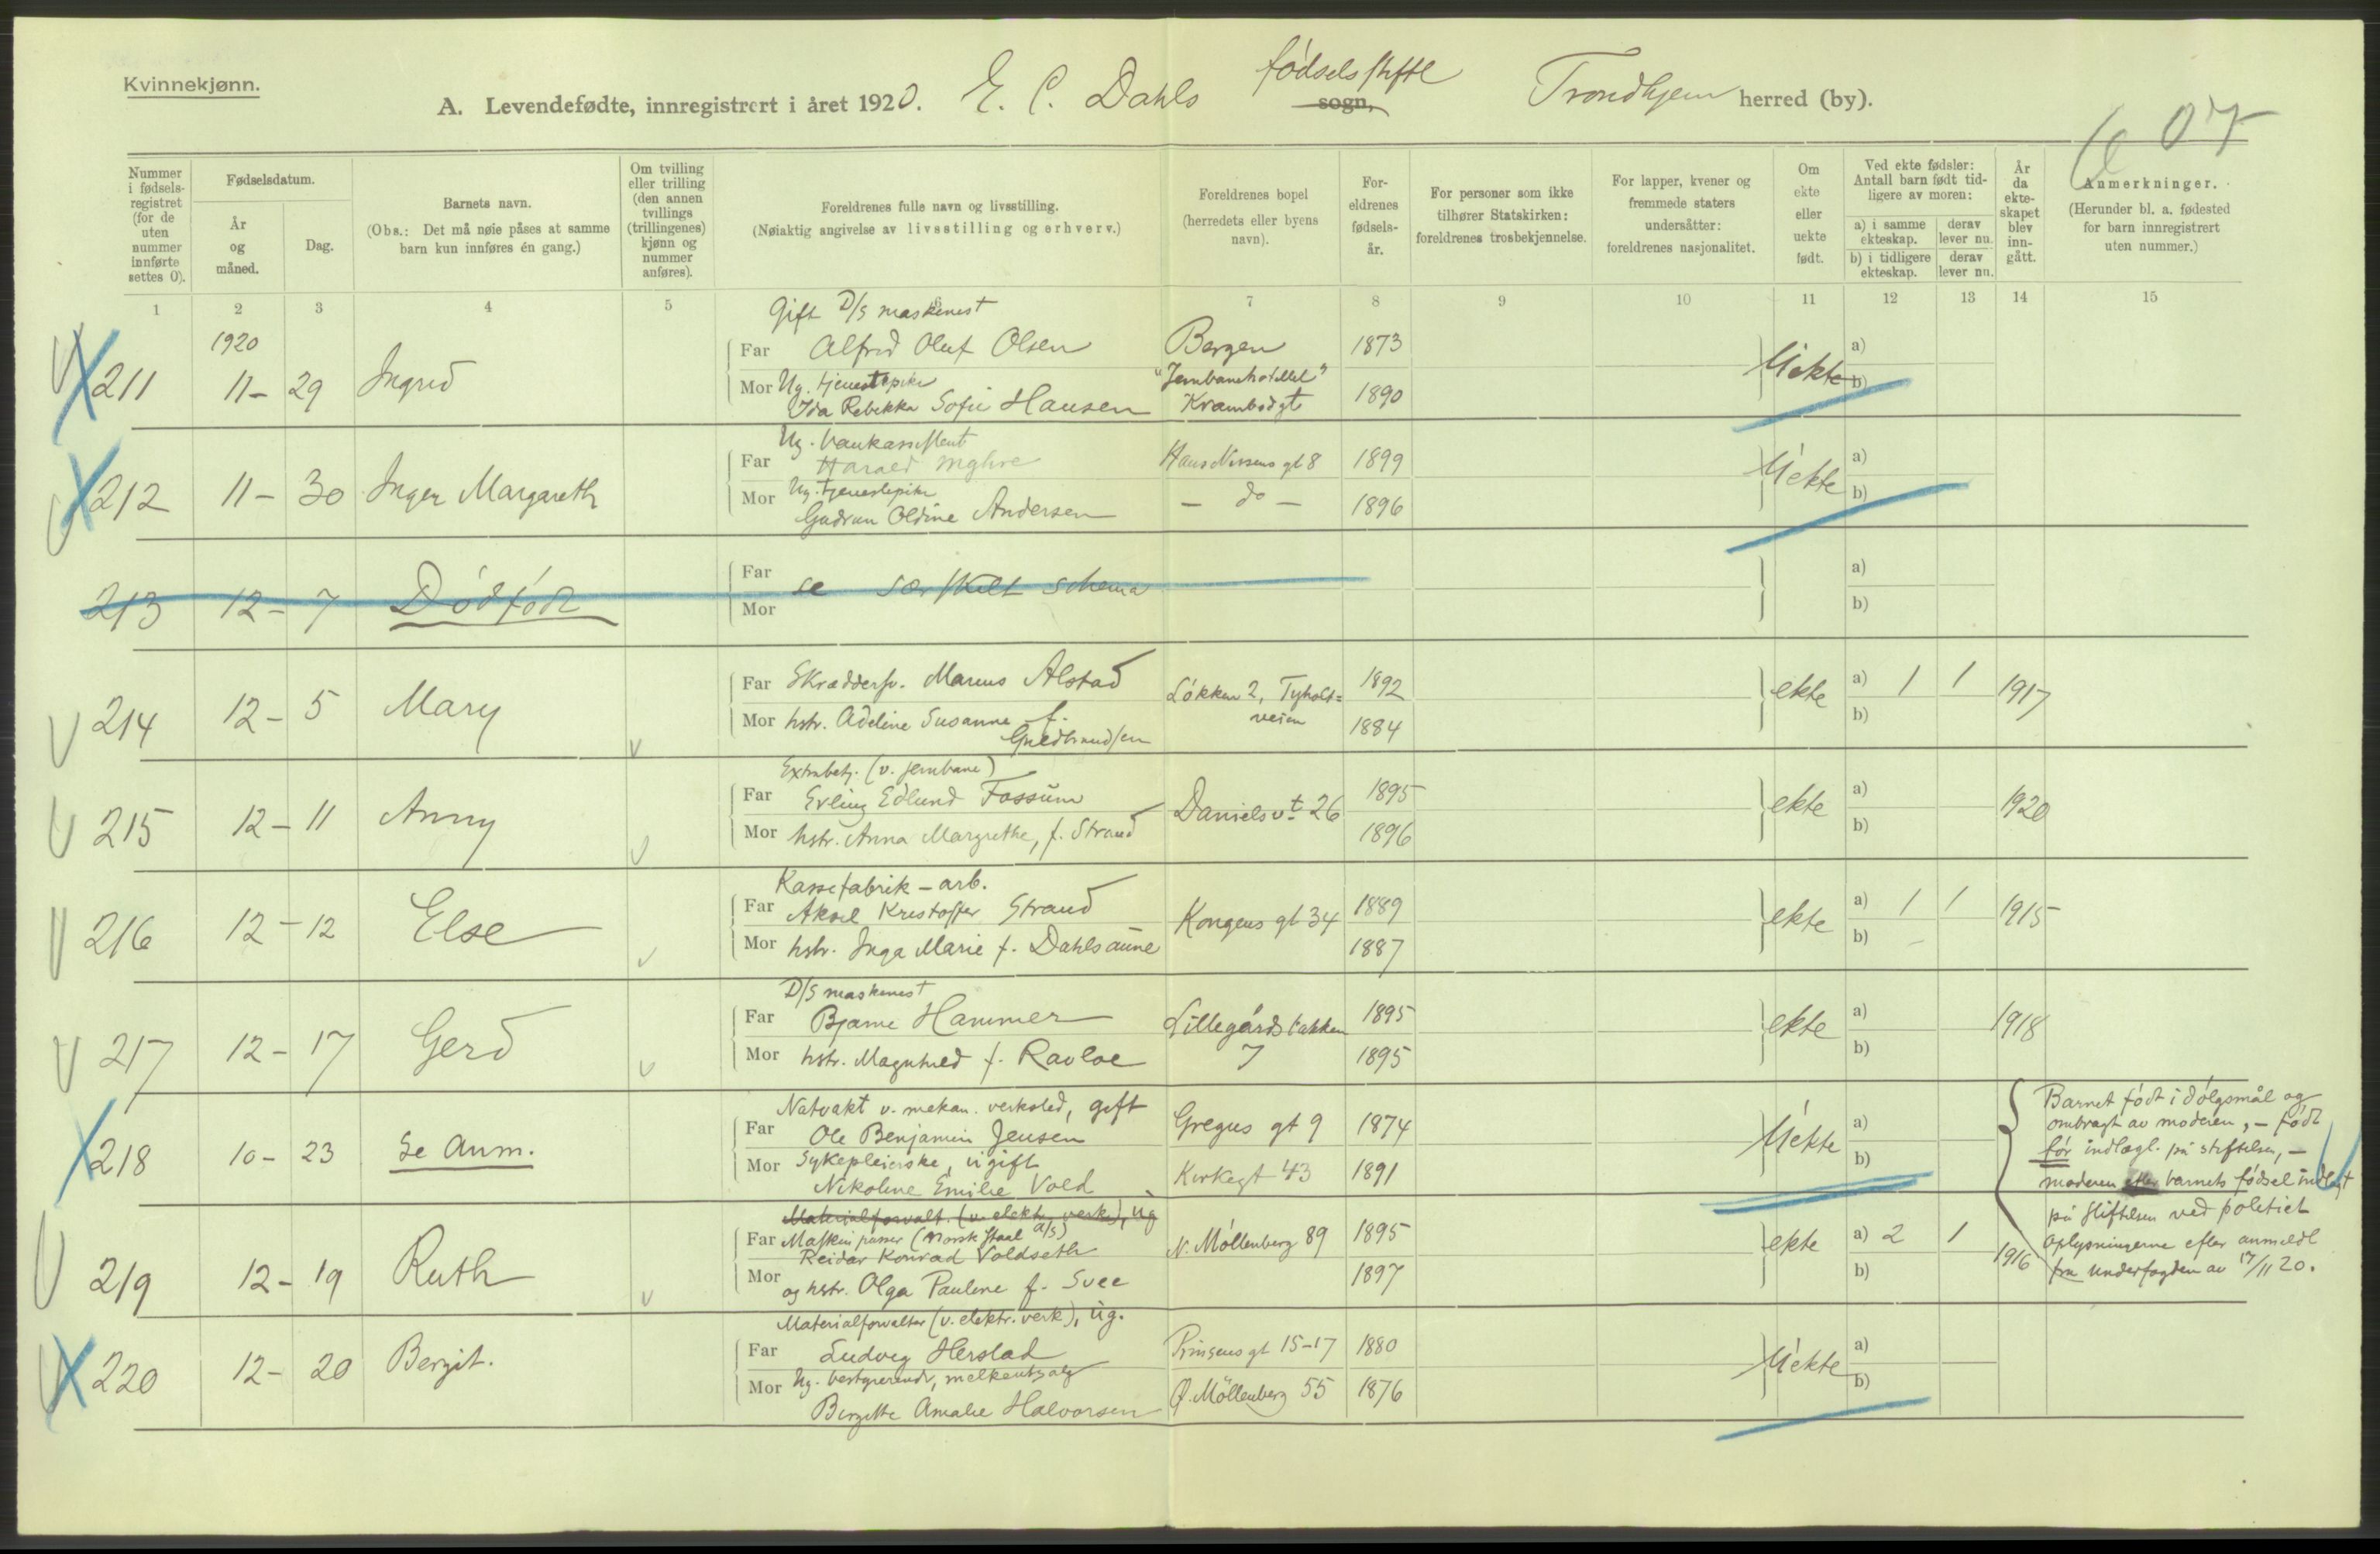 Kvinnekjønn.
A. Levendefødte, innregistrert i året 1920. E. C. Dahls fødselsstiftl sogn, Trondhjem herred (by).
607
Nummer i fødsels-registret (for de uten nummer innførte settes 0).
Fødselsdatum.
År og måned.
Dag.
Barnets navn.
(Obs.: Det må nøie påses at samme barn kun innføres én gang.)
Om tvilling eller trilling (den annen tvillings (trillingenes) kjønn og nummer anføres).
Foreldrenes fulle navn og livsstilling.
(Nøiaktig angivelse av livsstilling og erhverv.)
Foreldrenes bopel (herredets eller byens navn).
For-eldrenes fødsels-år.
For personer som ikke tilhører Statskirken: foreldrenes trosbekjennelse.
For lapper, kvener og fremmede staters undersåtter: foreldrenes nasjonalitet.
Om ekte eller uekte født.
Ved ekte fødsler: Antall barn født tid-ligere av moren:
a) i samme ekteskap.
derav lever nu.
b) i tidligere ekteskap.
derav lever nu.
År da ekte-skapet blev inn-gått.
Anmerkninger.
(Herunder bl. a. fødested for barn innregistrert uten nummer.)
1 2 3 4 5 6 7 8 9 10 11 12 13 14 15
1920
Gift D/S maskinist
211 11- 29 Ingrid Far Alfred Oluf Olsen Bergen 1873 Uekte a) b)
Mor Ug. tjenestepike "Jernbanehotellet"
Ida Rebekka Sofie Hansen Krambodgt 1890
Ug. bankassistent
212 11- 30 Inger Margareth Far Harald Myhre Hans Nissens gt 8 1899 Uekte a) b)
Mor Ug. tjenestepike - do - 1896
Gudrun Oldine Andersen
213 12- 7 Dødfødt Far Mor se særskilt schema a) b)
214 12- 5 Mary Far Skræddersv. Marius Alstad Løkken 2, Tyholt= veien 1892 ekte a) 1 1 1917
Mor hstr. Adeline Susanne f. 1884 b)
Guldbrandsen
Extrabetj. (v. jernbane)
215 12- 11 Anny Far Erling Edlund Fossum Danielsvt 26 1895 ekte a) 1920
Mor hstr. Anna Margrethe, f. Strand 1896 b)
Kassefabrik-arb.
216 12- 12 Else Far Aksel Kristoffer Strand Kongens gt 34 1889 ekte a) 1 1 1915
Mor hstr. Inga Marie f. Dahlsaune 1887 b)
D/S maskinist
217 12- 17 Gerd Far Bjarne Hammer Lillegårdsbakken 7 1895 ekte a) 1918
Mor hstr. Magnhild f. Ravloe 1895 b)
Natvakt v. mekan. verksted, gift
218 10- 23 Se Anm. Far Ole Benjamin Jensen Gregus gt 9 1874 Uekte a) b)
Mor Sykepleierske, ugift Kirkegt 43 1891
Nikoline Emilie Vold
Barnet født i dølgsmål og
ombragt av moderen, - født
før indlægl. på stiftelsen, -
moderen efter barnets fødsel indlagt
på Stiftelsen ved politiet
Oplysningerne efter anmeldl
fra Underfogden av 17/11 20.
Materialforvalt. (v. elektr. verk), ug
219 12- 19 Ruth Far Maskinpasser (Norsk Staal A/S) N. Möllenberg 89 1895 ekte a) 2 1 1916
Reidar Konrad Voldseth
Mor og hstr. Olga Pauline f. Svee 1897 b)
Materialforvalter (v. elektr. verk), ug.
220 12- 20 Bergit. Far Ludvig Herstad Prinsens gt 15-17 1880 Uekte a) b)
Mor Ug. bestyrerinde, melkeutsalg Ø. Möllenberg 55 1876
Bergitte Amalie Halvorsen